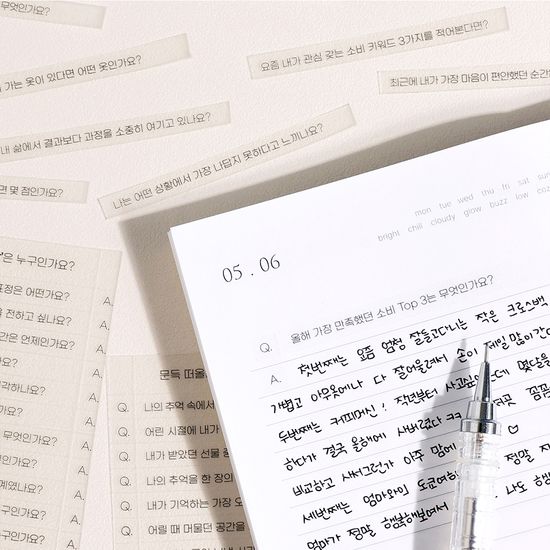 무엇인가요?
가는 옷이 있다면 어떤 옷인가요?
내 삶에서 결과보다 과정을 소중히 여기고 있나요?
면 몇 점인가요?
나는 어떤 상황에서 가장 나답지 못하다고 느끼나요?
요즘 내가 관심 갖는 소비 키워드 3가지를 적어본다면?
최근에 내가 가장 마음이 편안했던 순간
mon tue wed thu fri sat sun
bright chill cloudy glow buzz low
05 . 06
Q. 올해 가장 만족했던 소비 Top 3는 무엇인가요?
A. 첫번째는 요즘 엄청 잘들고다니는 작은 크로스백
개볍고 아무옷에나 다 잘어울려서 손이 제일 많이간다
두번째는 커피머신! 작년부터
하다가 결국 올해에 사버렸다 ㅋㅋ
비교하고 사서그런가 아주 맘에 정말
세번째는 엄마와의 나도
엄마가 정말 행복해보여서
은 누구인가요?
표정은 어떤가요?
A.
을 전하고 싶나요?
A.
간은 언제인가요?
A.
A.
각하나요?
A.
무엇인가요?
A.
인가요?
A.
계였나요?
A.
구인가요?
A.
구인가요?
문득 떠올
Q. 나의 추억 속에서
Q. 어린 시절에 내가
Q. 내가 받았던 선물 중
Q. 나의 추억을 한 장의
Q. 내가 기억하는 가장 오
Q. 어릴 때 머물던 공간을